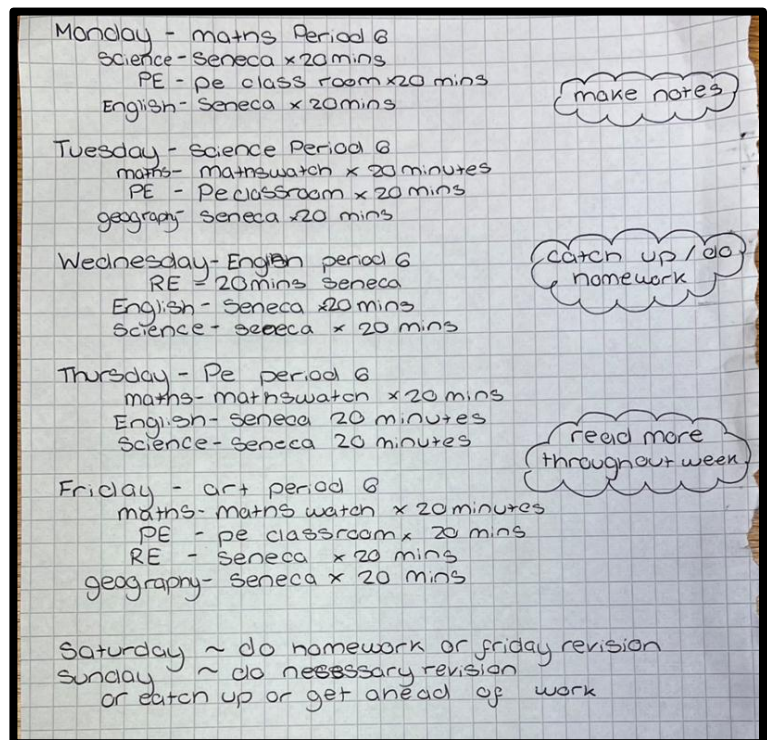 Monday - maths Period 6
Science - Seneca x 20 mins
PE - pe class room x20 mins
English - Seneca x 20mins
make notes
Tuesday - Science Period 6
maths - mathswatch x 20 minutes
PE - Pe classroom x 20 mins
geography - Seneca x20 mins
Wednesday - English period 6
RE - 20mins Seneca
English - Seneca x20mins
Science - seneca x 20 mins
catch up / do
homework
Thursday - Pe period 6
maths - mathswatch x 20 mins
English - Seneca 20 minutes
Science - Seneca 20 minutes
read more
throughout week
Friday - art period 6
maths - maths watch x 20 minutes
PE - pe classroom x 20 mins
RE - Seneca x 20 mins
geography - Seneca x 20 mins
Saturday ~ do homework or friday revision
Sunday ~ do necessary revision
or catch up or get ahead of work